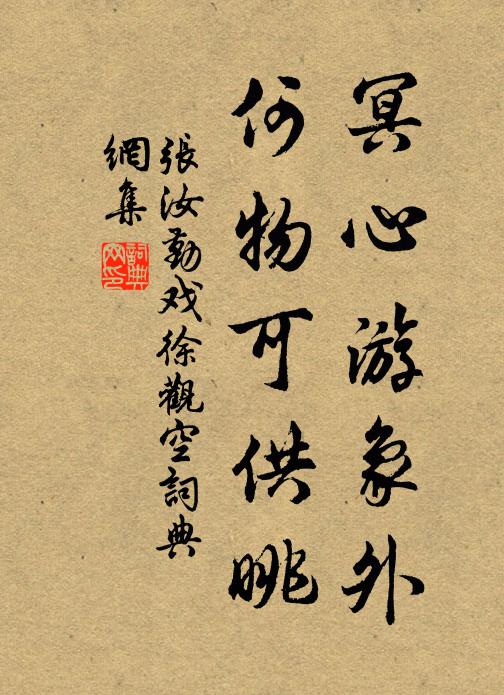 冥心游象外
何物可供眺
張汝勤戏徐觀空詞典
網集
詞典網印